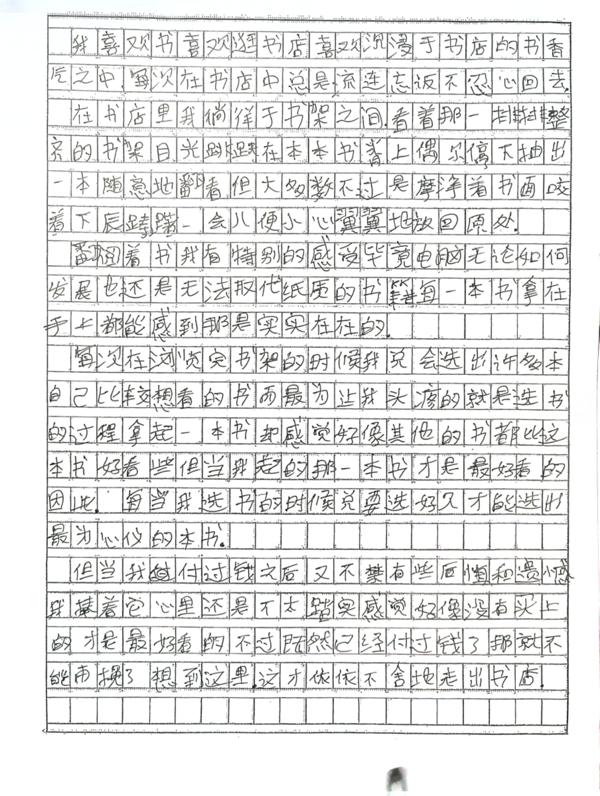 我喜欢书喜欢逛书店喜欢沉浸于书店的书香
气之中.每次在书店中总是流连忘返不忍心回去.
在书店里我徜徉于书架之间.看着那一排排整
齐的书架目光跳跃在本本书脊上偶尔停下抽出
一本随意地翻看但大多数不过是摩净着书面咬
着下辰踌躇一会儿便小心翼翼地放回原处.
翻阅着书我有特别的感受毕竟电脑无论如何
发展也还是无法取代纸质的书籍每一本书拿在
手上都能感到那是实实在在的.
每次在浏览完书架的时候我总会选出许多本
自己比较想看的书而最为让我头疼的就是选书
的过程拿起一本书却感觉好像其他的书都比这
本书好看些但当我起的那一本书才是最好看的
因此.每当我选书的时候总要选好久才能选出
最为心仪的本书.
但当我付过钱之后又不禁有些后悔和遗憾
我捧着它心里还是不太踏实感觉好像没有买上
的才是最好看的不过既然已经付过钱了那就不
能再换了想到这里.这才依依不舍地走出书店.